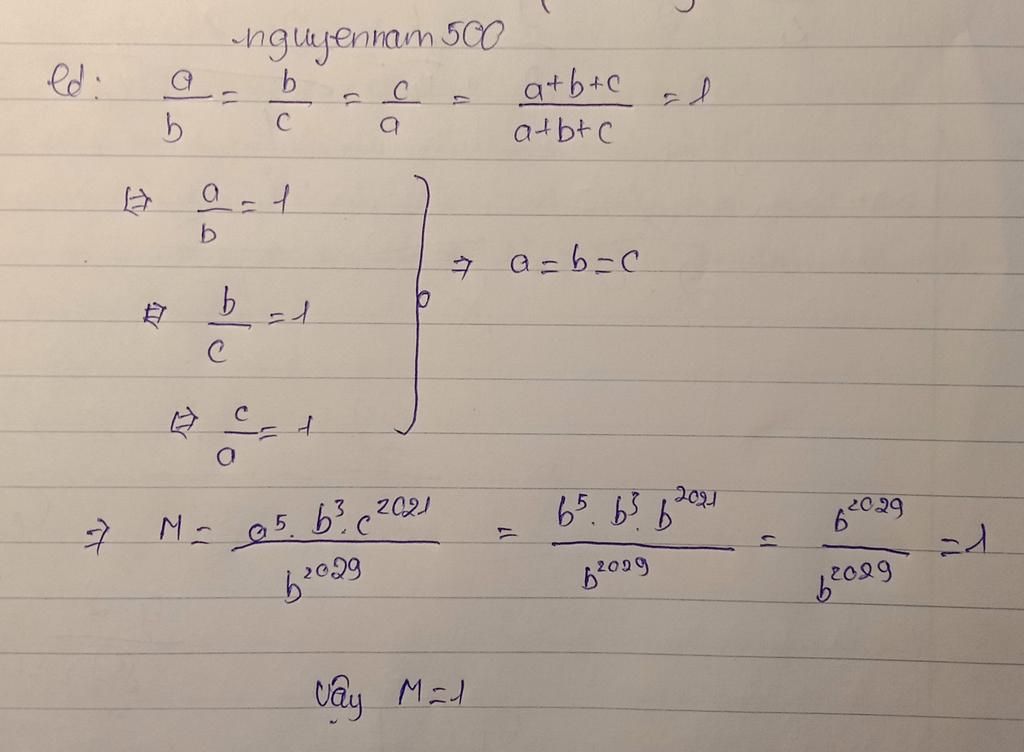 nguyennam500
Cd: a/b = b/c = c/a = (a+b+c)/(a+b+c) = 1
⇔ a/b = 1
⇒ a = b = c
⇔ b/c = 1
⇔ c/a = 1
⇒ M = (a⁵. b³. c²⁰²¹)/b²⁰²⁹ = (b⁵. b³. b²⁰²¹)/b²⁰²⁹ = b²⁰²⁹/b²⁰²⁹ = 1
Vậy M = 1